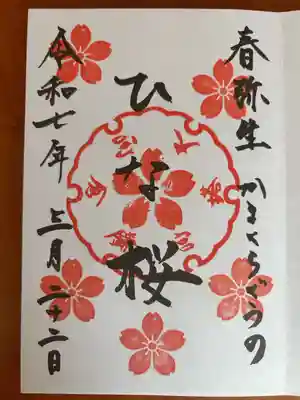 春弥生 かまくらぐうの
ひな桜
令和七年 三月二十二日